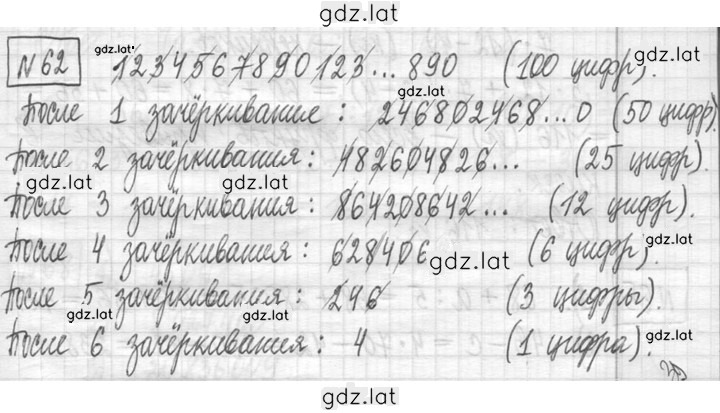 gdz.lat
№62 gdz.lat 1234567890123...890 (100 цифр). gdz.lat
gdz.lat
После 1 зачёркивание : 2468024680...0 (50 цифр).
После 2 зачёркивания : 482604826... (25 цифр).
gdz.lat gdz.lat gdz.lat
После 3 зачёркивания : 864208642... (12 цифр).
После 4 зачёркивания : 628406 gdz.lat (6 цифр). gdz.lat
После 5 зачёркивания : 246 (3 цифры).
gdz.lat gdz.lat
После 6 зачёркивания : 4 (1 цифра). gdz.lat
gdz.lat